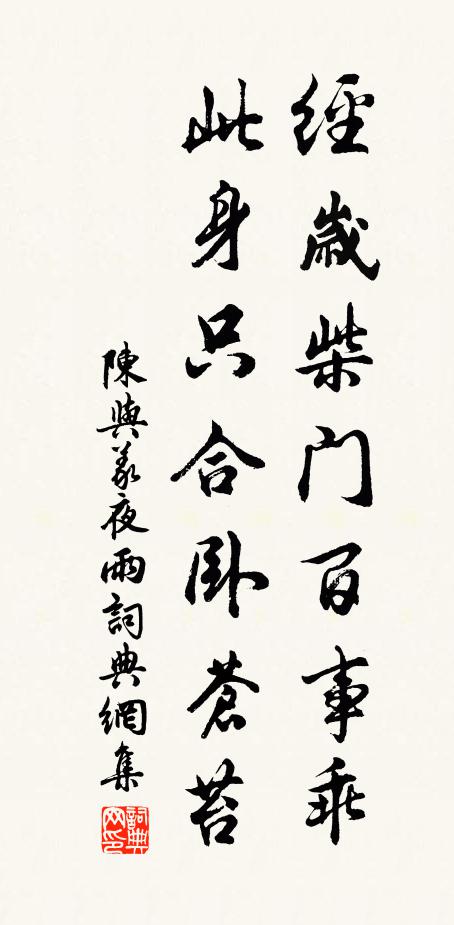 經歲柴門百事乖
此身只合臥蒼苔
陳與義夜雨詞典網集
詞典网印